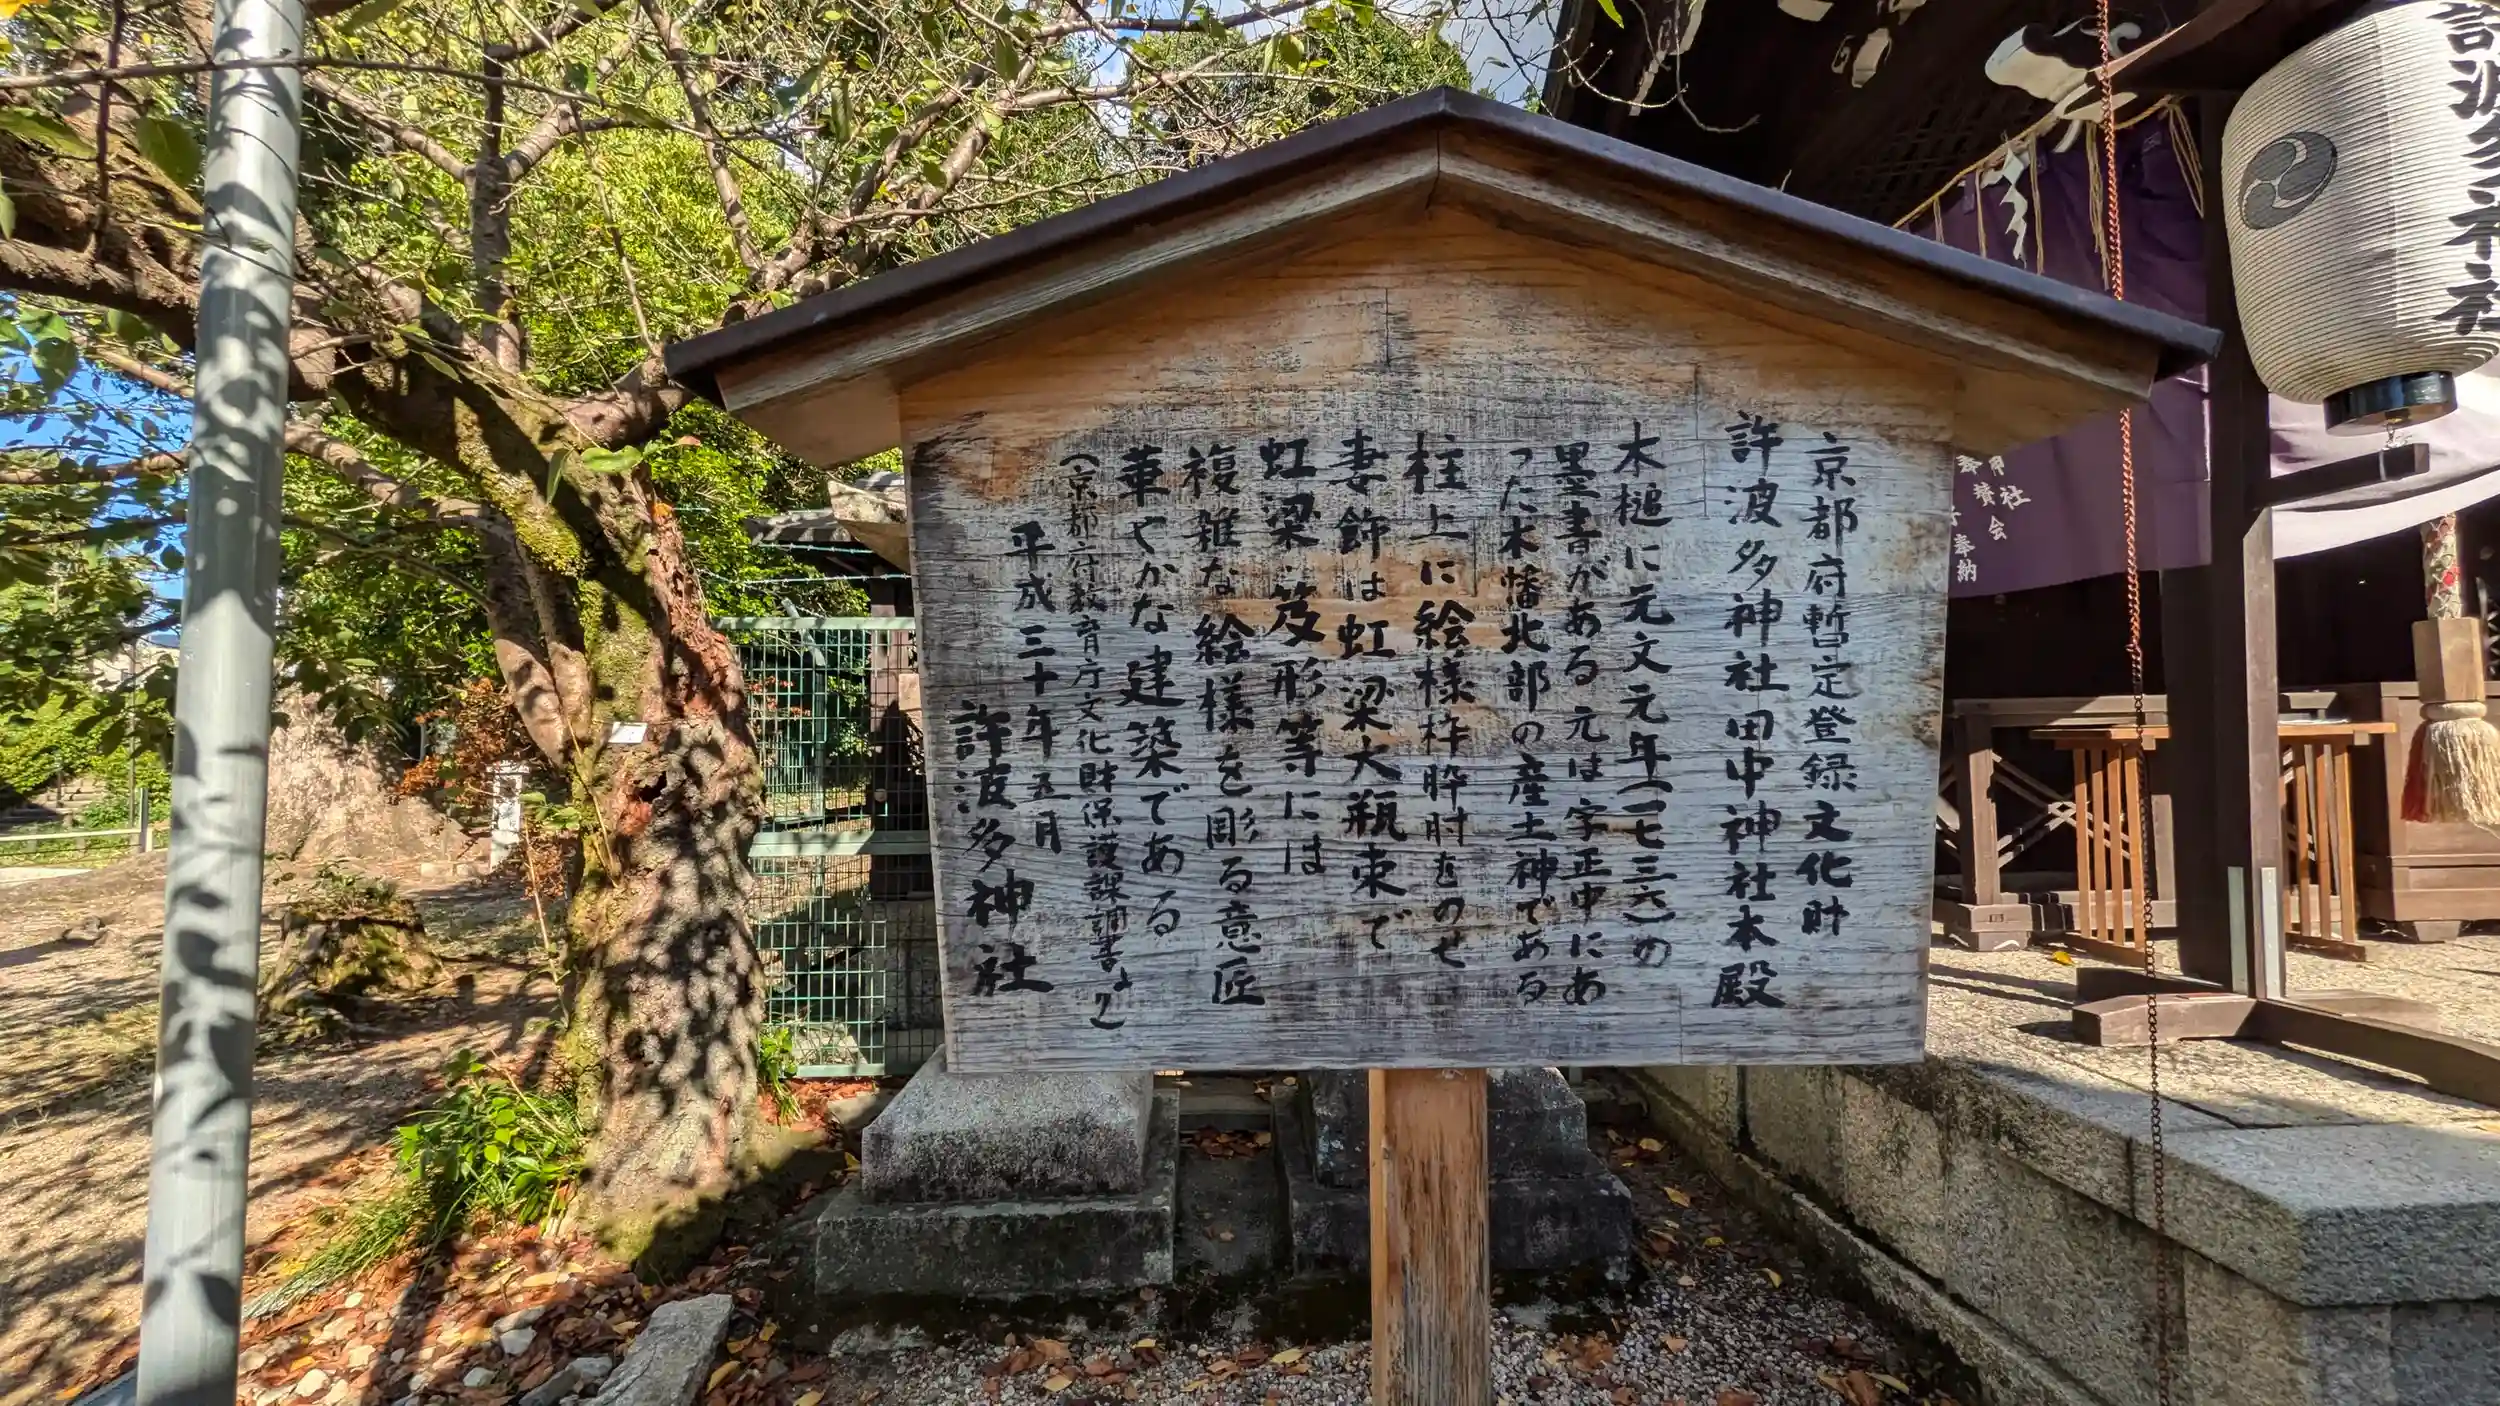 京都府暫定登録文化財
許波多神社田中神社本殿
木槌に元文元年(一七三六)の
墨書がある元は字正中にあ
った木幡北部の産土神である
柱上に絵様枠肘をのせ
妻飾は虹梁大瓶束で
虹梁・笈形等には
複雑な絵様を彫る意匠
華やかな建築である
(京都府教育庁文化財保護課調書より)
平成三十年五月
許波多神社
許波多神社
奉納